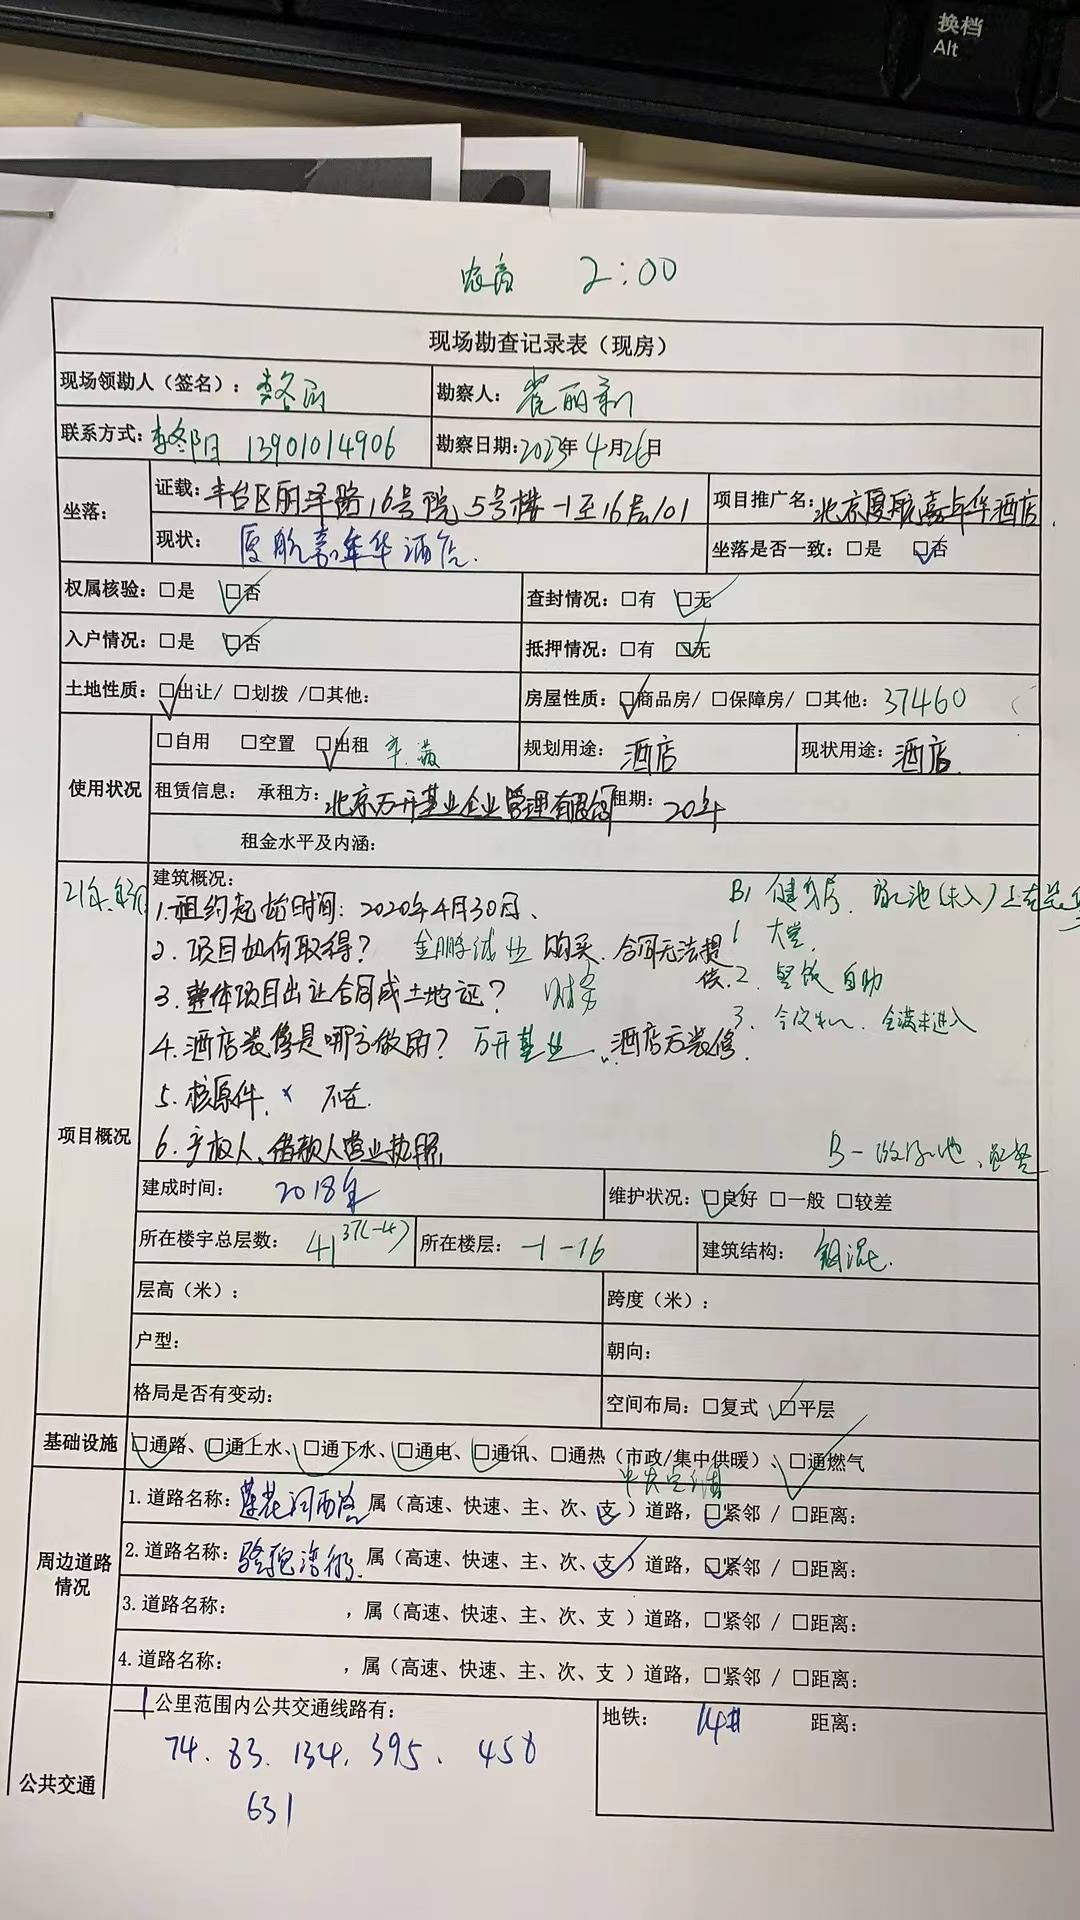 换档
Alt
2:00
现场勘查记录表（现房）
现场领勘人（签名）： 勘察人：
联系方式：李冬阳 13901014906 勘察日期：2023年4月26日
坐落：
证载：丰台区丽泽路16号院5号楼-1至16层101 项目推广名：北京厦航嘉年华酒店
现状：厦航嘉年华酒店. 坐落是否一致：□是 ☑否
权属核验：□是 ☑否 查封情况：□有 ☑无
入户情况：□是 ☑否 抵押情况：□有 ☑无
土地性质：☑出让/ □划拨 /□其他： 房屋性质：☑商品房/ □保障房/ □其他：37460
使用状况
□自用 □空置 ☑出租 规划用途：酒店 现状用途：酒店.
租赁信息： 承租方：北京万开基业企业管理有限公司 租期：20年
租金水平及内涵：
项目概况
建筑概况：
1.租约起始时间：2020年4月30日、
2.项目如何取得？ 金鹏诚业 购买、合同无法提供.
3.整体项目出让合同或土地证？ 财务
4.酒店装修是哪方做的？ 万开基业 酒店方装修.
5.核原件. × 不在.
6.产权人、借款人营业执照
B1 健身房、泳池(未入)
1 大堂.
2. 自助
3. 未进入
建成时间：2018年 维护状况：☑良好 □一般 □较差
所在楼宇总层数：41 37(-4) 所在楼层：-1-16 建筑结构：钢混.
层高（米）： 跨度（米）：
户型： 朝向：
格局是否有变动： 空间布局：□复式 ☑平层
基础设施 ☑通路、☑通上水、☑通下水、☑通电、☑通讯、□通热（市政/集中供暖）、☑通燃气
中央空调
周边道路情况
1.道路名称：莲花河西路 属（高速、快速、主、次、支✓）道路，☑紧邻 / □距离：
2.道路名称：骆驼湾街. 属（高速、快速、主、次、支✓）道路，☑紧邻 / □距离：
3.道路名称： ，属（高速、快速、主、次、支 ）道路，□紧邻 / □距离：
4.道路名称： ，属（高速、快速、主、次、支 ）道路，□紧邻 / □距离：
公共交通
1公里范围内公共交通线路有： 地铁：14# 距离：
74. 83. 134. 395. 458
631